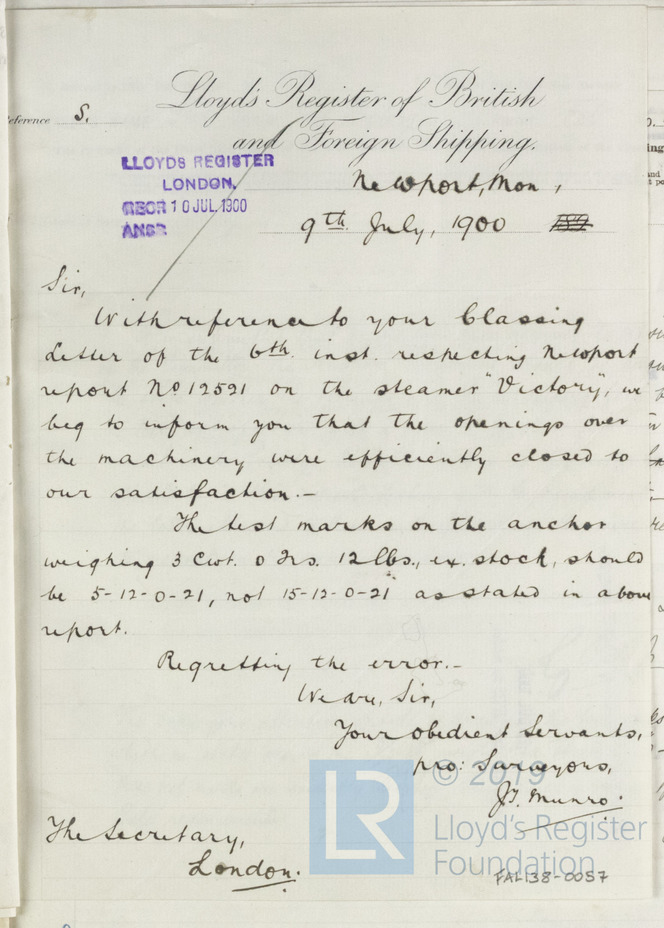 Lloyd's Register of British
Reference S.
and Foreign Shipping.
LLOYDS REGISTER
LONDON.
RECD 10 JUL 1900
ANSD
Newport, Mon,
9th July, 1900
Sir,
With reference to your Classing
Letter of the 6th inst. respecting Newport
report No 12521 on the steamer "Victory", we
beg to inform you that the openings over
the machinery were efficiently closed to
our satisfaction.-
The test marks on the anchor
weighing 3 Cwt. 0 Qrs. 12 lbs., ex. stock, should
be 5-12-0-21, not 15-12-0-21 as stated in above
report.
Regretting the error.-
We are, Sir,
Your obedient Servants,
pro: Surveyors,
J. Munro.
The Secretary,
London.
LR
© 2019
Lloyd's Register
Foundation
FAL138-0057